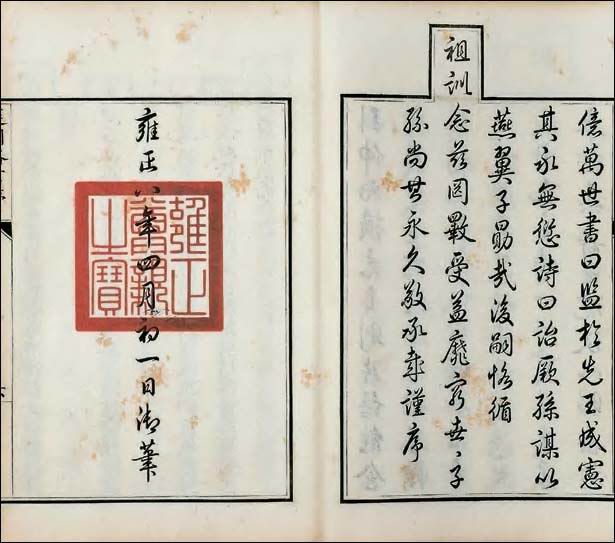 億萬世書曰監於先王成憲
其永無愆詩曰詒厥孫謀以
燕翼子勗哉後嗣恪循
祖訓念茲罔斁受益靡窮世〻子
孫尚其永久敬承哉謹序
雍正八年四月初一日御筆
雍正
之寶